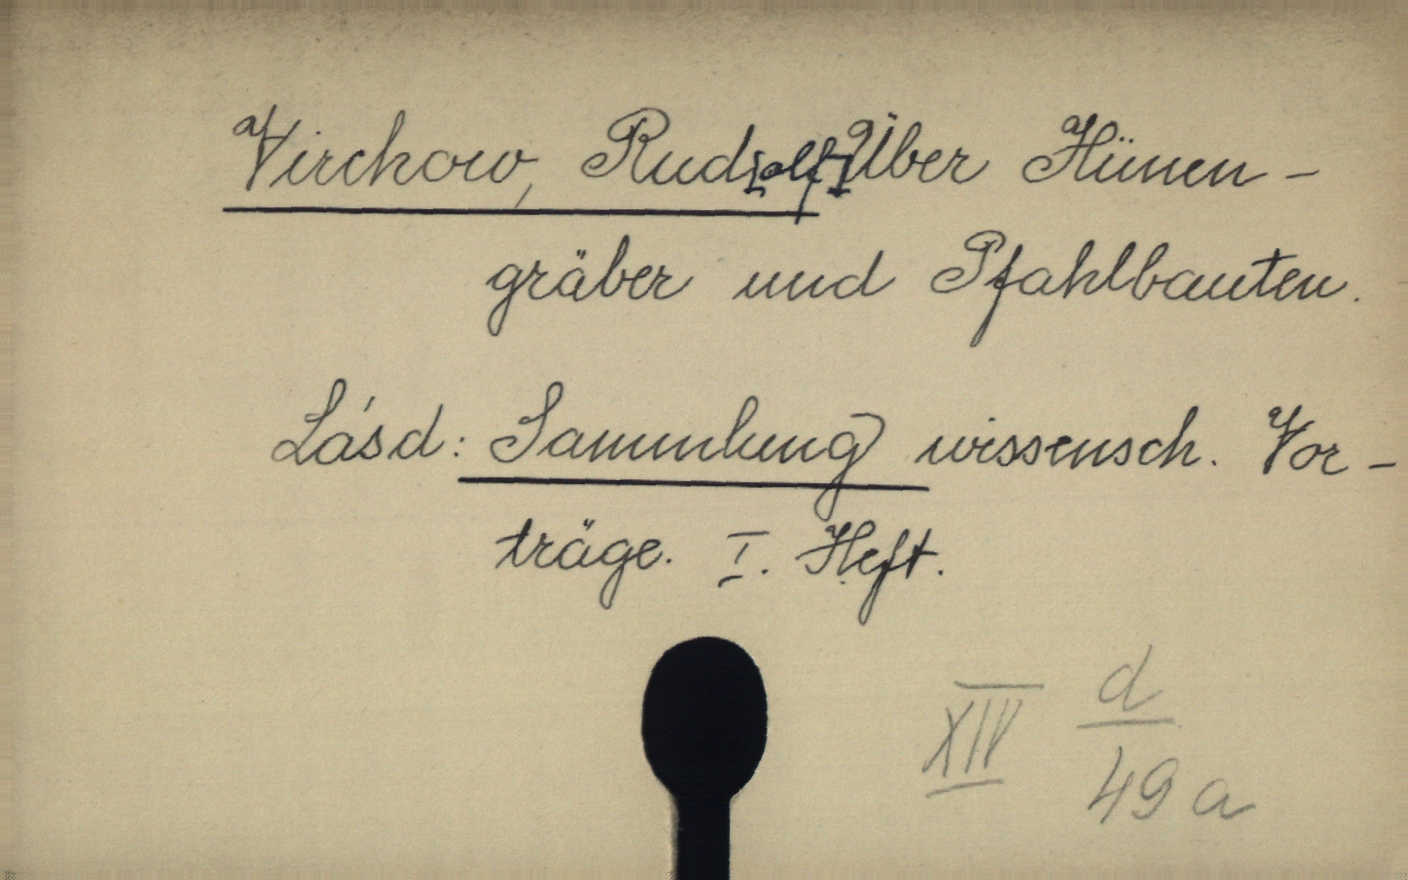 Virchow, Rud[olf] Über Hünen-
gräber und Pfahlbauten.
Lásd: Sammlung wissensch. Vor-
träge. I. Heft.
XIV d
49 a